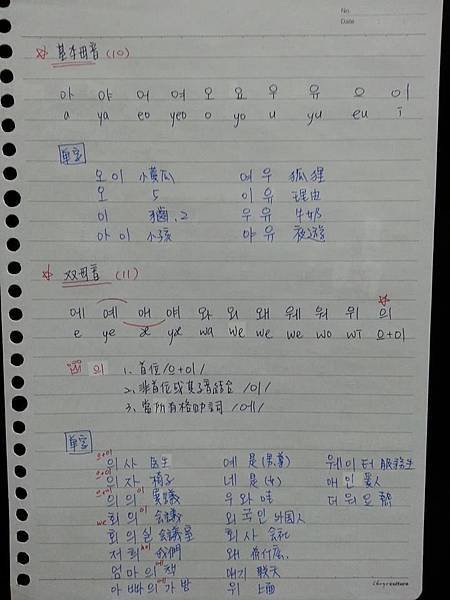 No
Date
☆ 基本母音 (10)
아 야 어 여 오 요 우 유 으 이
a ya eo yeo o yo u yu eu i
單字
오이 小黃瓜 여우 狐狸
오 5 이유 理由
이 2 우유 牛奶
아이 小孩 야유 夜遊
☆ 双母音 (11)
에 예 애 얘 와 외 왜 웨 워 위 의
e ye æ yæ wa we we we wo wi 으+이
의 1、首位/으+이/
2、非首位或其子音結合 /이/
3、當所有格助詞 /에/
單字
의사 医生 예 是(男尊) 웨이터 服務生
의자 椅子 네 是(女) 애인 愛人
의의 異議 우와 哇 더워요 熱
회의 会議 외국인 外国人
회의실 会議室 회사 会社
저희 我們 왜 為什麼
엄마의 책 얘기 聊天
아빠의 가방 위 上面